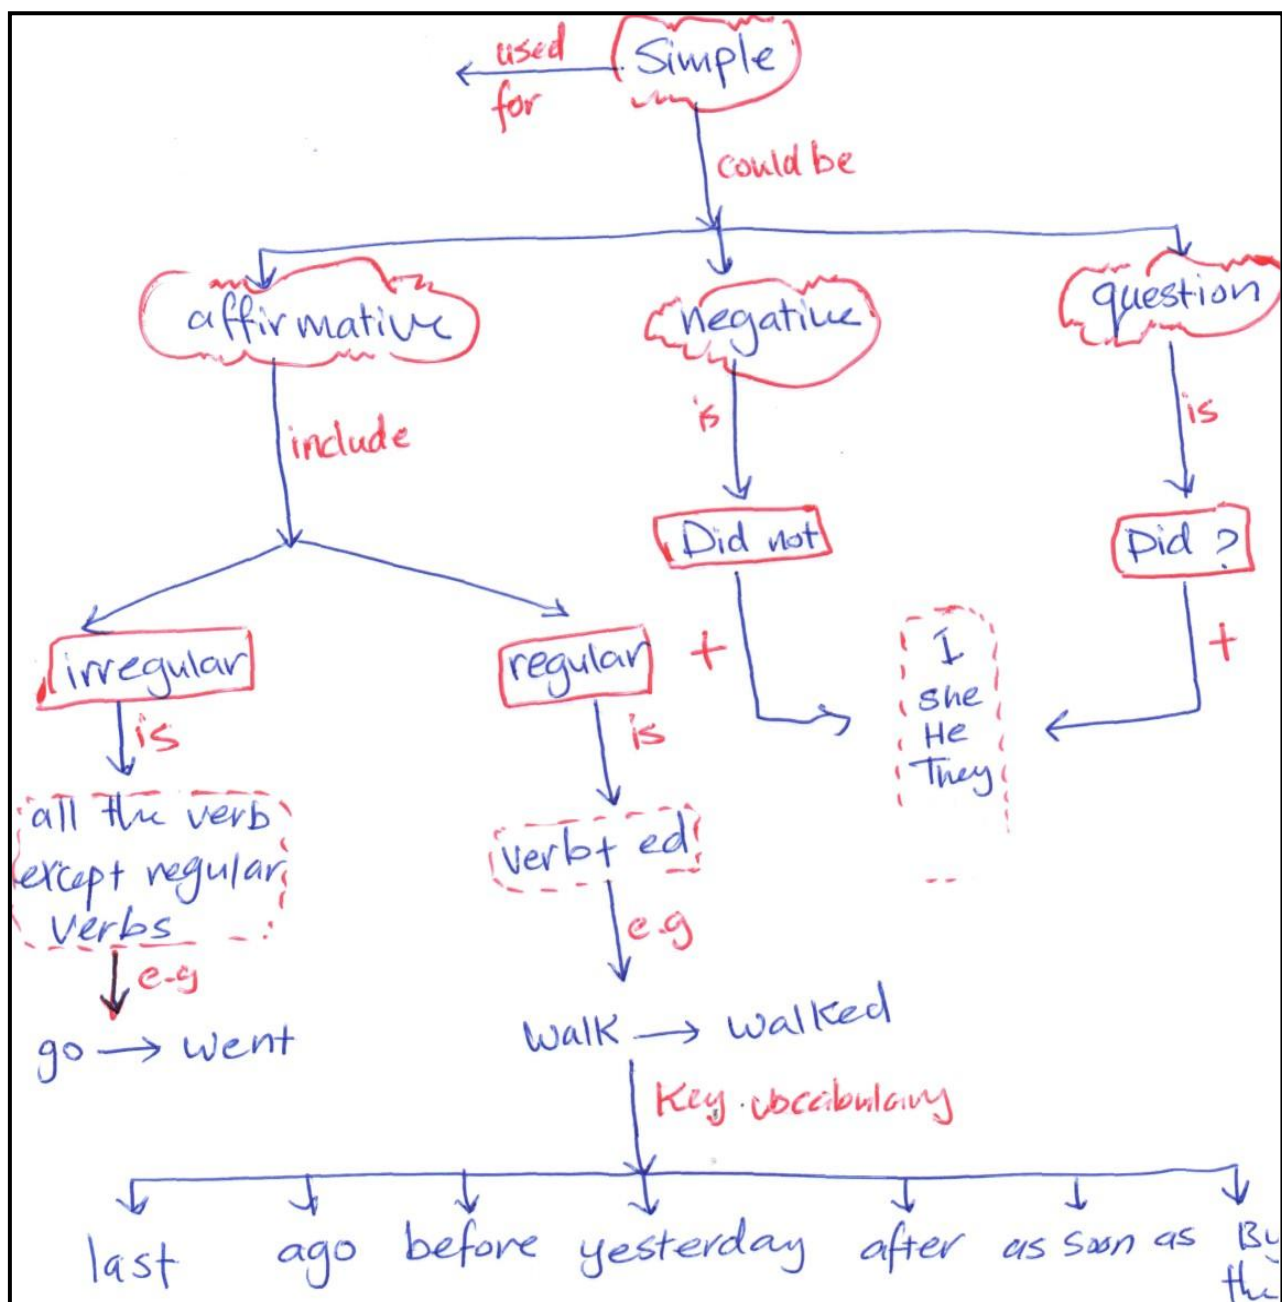 used
for
Simple
could be
affirmative
negative
question
include
is
is
Did not
Did ?
irregular
regular
+
+
I
She
He
They
is
is
all the verb
except regular
verbs
verb+ ed
e.g
e.g
go → went
walk → walked
Key vocabulary
last
ago
before
yesterday
after
as soon as
By
the